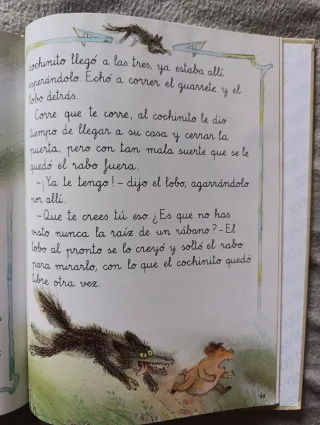 cochinito llegó a las tres, ya estaba allí
esperándolo. Echó a correr el guarrete y el
lobo detrás.
Corre que te corre, al cochinito le dio
tiempo de llegar a su casa y cerrar la
puerta, pero con tan mala suerte que se le
quedó el rabo fuera.
-¡Ya te tengo! - dijo el lobo, agarrándolo
por allí.
-Que te crees tú eso. ¿Es que no has
visto nunca la raíz de un rábano? -El
lobo al pronto se lo creyó y soltó el rabo
para mirarlo, con lo que el cochinito quedó
libre otra vez.